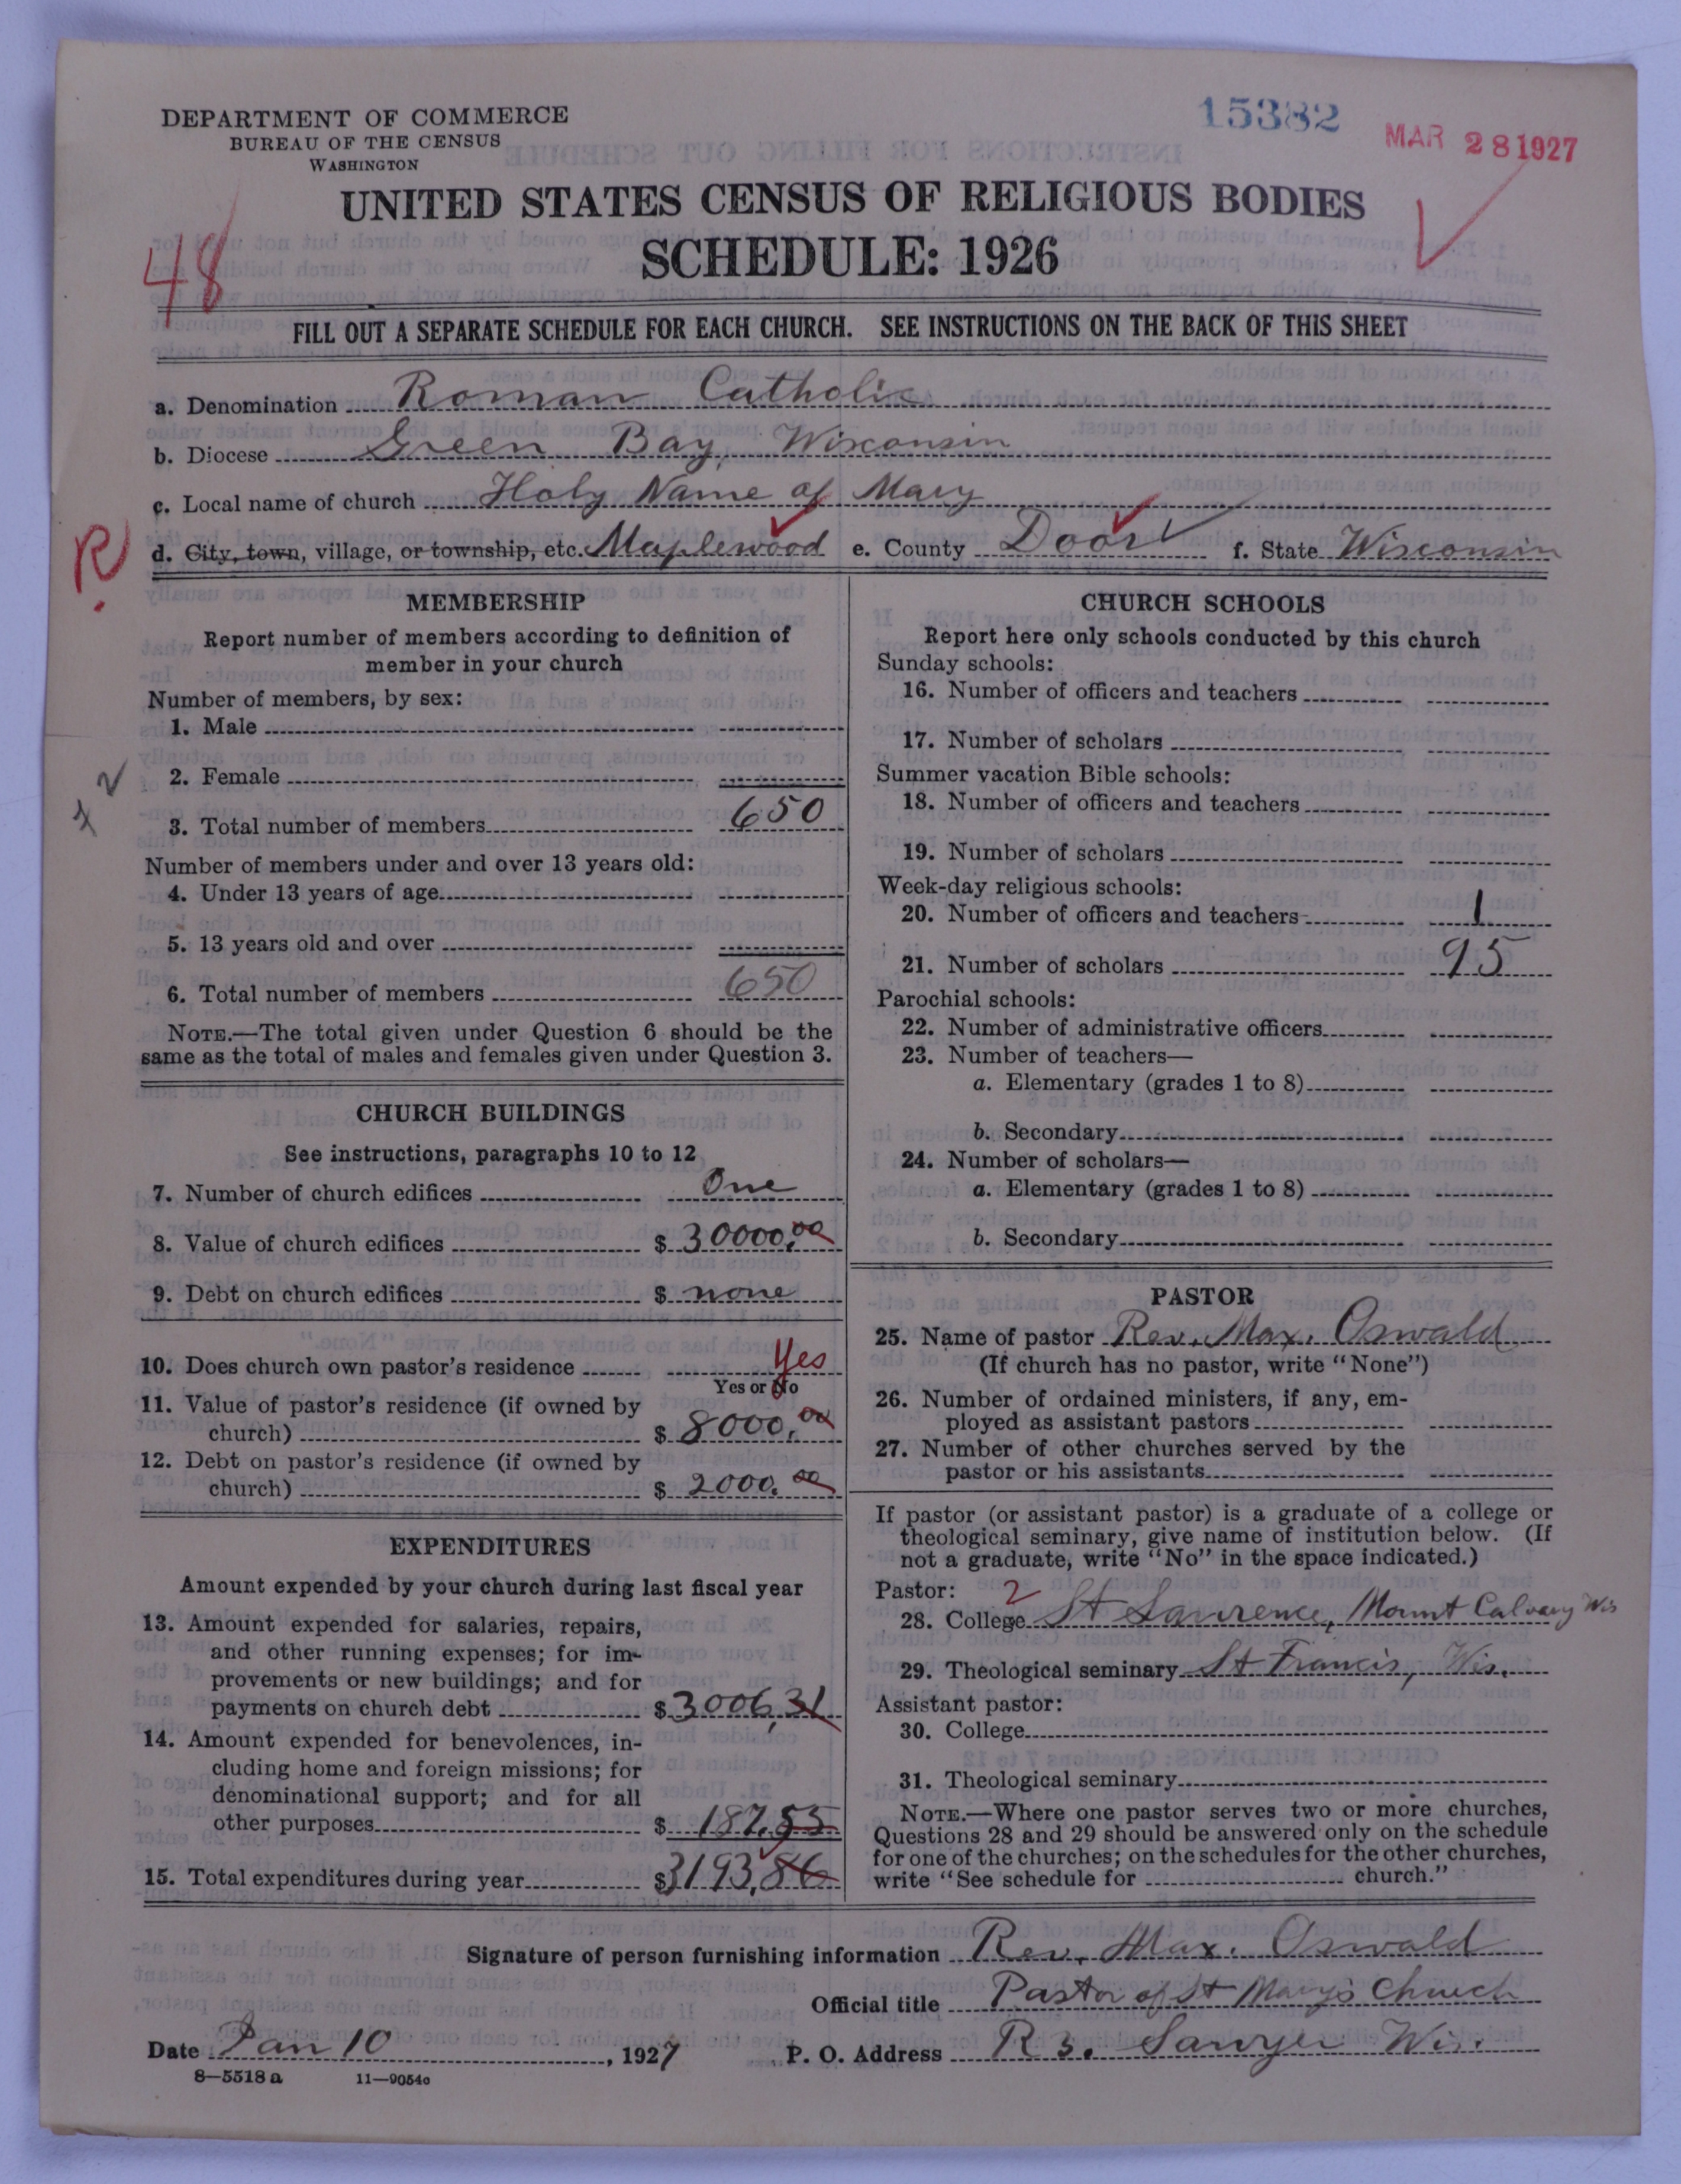 DEPARTMENT OF COMMERCE
BUREAU OF THE CENSUS
WASHINGTON
15382
MAR 28 1927
UNITED STATES CENSUS OF RELIGIOUS BODIES
SCHEDULE: 1926
48
FILL OUT A SEPARATE SCHEDULE FOR EACH CHURCH. SEE INSTRUCTIONS ON THE BACK OF THIS SHEET
a. Denomination Roman Catholic
b. Diocese Green Bay, Wisconsin
c. Local name of church Holy Name of Mary
R
d. City, town, village, or township, etc. Maplewood e. County Door f. State Wisconsin
MEMBERSHIP
Report number of members according to definition of
member in your church
Number of members, by sex:
1. Male
2. Female
3. Total number of members 650
Number of members under and over 13 years old:
4. Under 13 years of age
5. 13 years old and over
6. Total number of members 650
NOTE.—The total given under Question 6 should be the
same as the total of males and females given under Question 3.
CHURCH BUILDINGS
See instructions, paragraphs 10 to 12
7. Number of church edifices One
8. Value of church edifices $ 30000.00
9. Debt on church edifices $ none
10. Does church own pastor's residence Yes
Yes or No
11. Value of pastor's residence (if owned by
church) $ 8000.00
12. Debt on pastor's residence (if owned by
church) $ 2000.00
EXPENDITURES
Amount expended by your church during last fiscal year
13. Amount expended for salaries, repairs,
and other running expenses; for im-
provements or new buildings; and for
payments on church debt $ 3006,31
14. Amount expended for benevolences, in-
cluding home and foreign missions; for
denominational support; and for all
other purposes $ 187.55
15. Total expenditures during year $ 3193,86
CHURCH SCHOOLS
Report here only schools conducted by this church
Sunday schools:
16. Number of officers and teachers
17. Number of scholars
Summer vacation Bible schools:
18. Number of officers and teachers
19. Number of scholars
Week-day religious schools:
20. Number of officers and teachers 1
21. Number of scholars 95
Parochial schools:
22. Number of administrative officers
23. Number of teachers—
a. Elementary (grades 1 to 8)
b. Secondary
24. Number of scholars—
a. Elementary (grades 1 to 8)
b. Secondary
PASTOR
25. Name of pastor Rev. Max. Oswald
(If church has no pastor, write "None")
26. Number of ordained ministers, if any, em-
ployed as assistant pastors
27. Number of other churches served by the
pastor or his assistants
If pastor (or assistant pastor) is a graduate of a college or
theological seminary, give name of institution below. (If
not a graduate, write "No" in the space indicated.)
Pastor: 2
28. College St Lawrence, Mount Calvary Wis
29. Theological seminary St Francis, Wis.
Assistant pastor:
30. College
31. Theological seminary
NOTE.—Where one pastor serves two or more churches,
Questions 28 and 29 should be answered only on the schedule
for one of the churches; on the schedules for the other churches,
write "See schedule for church."
Signature of person furnishing information Rev. Max. Oswald
Official title Pastor of St Mary's Church
Date Jan 10, 1927 P. O. Address R 3. Sawyer Wis.
8—5518 a 11—9054o